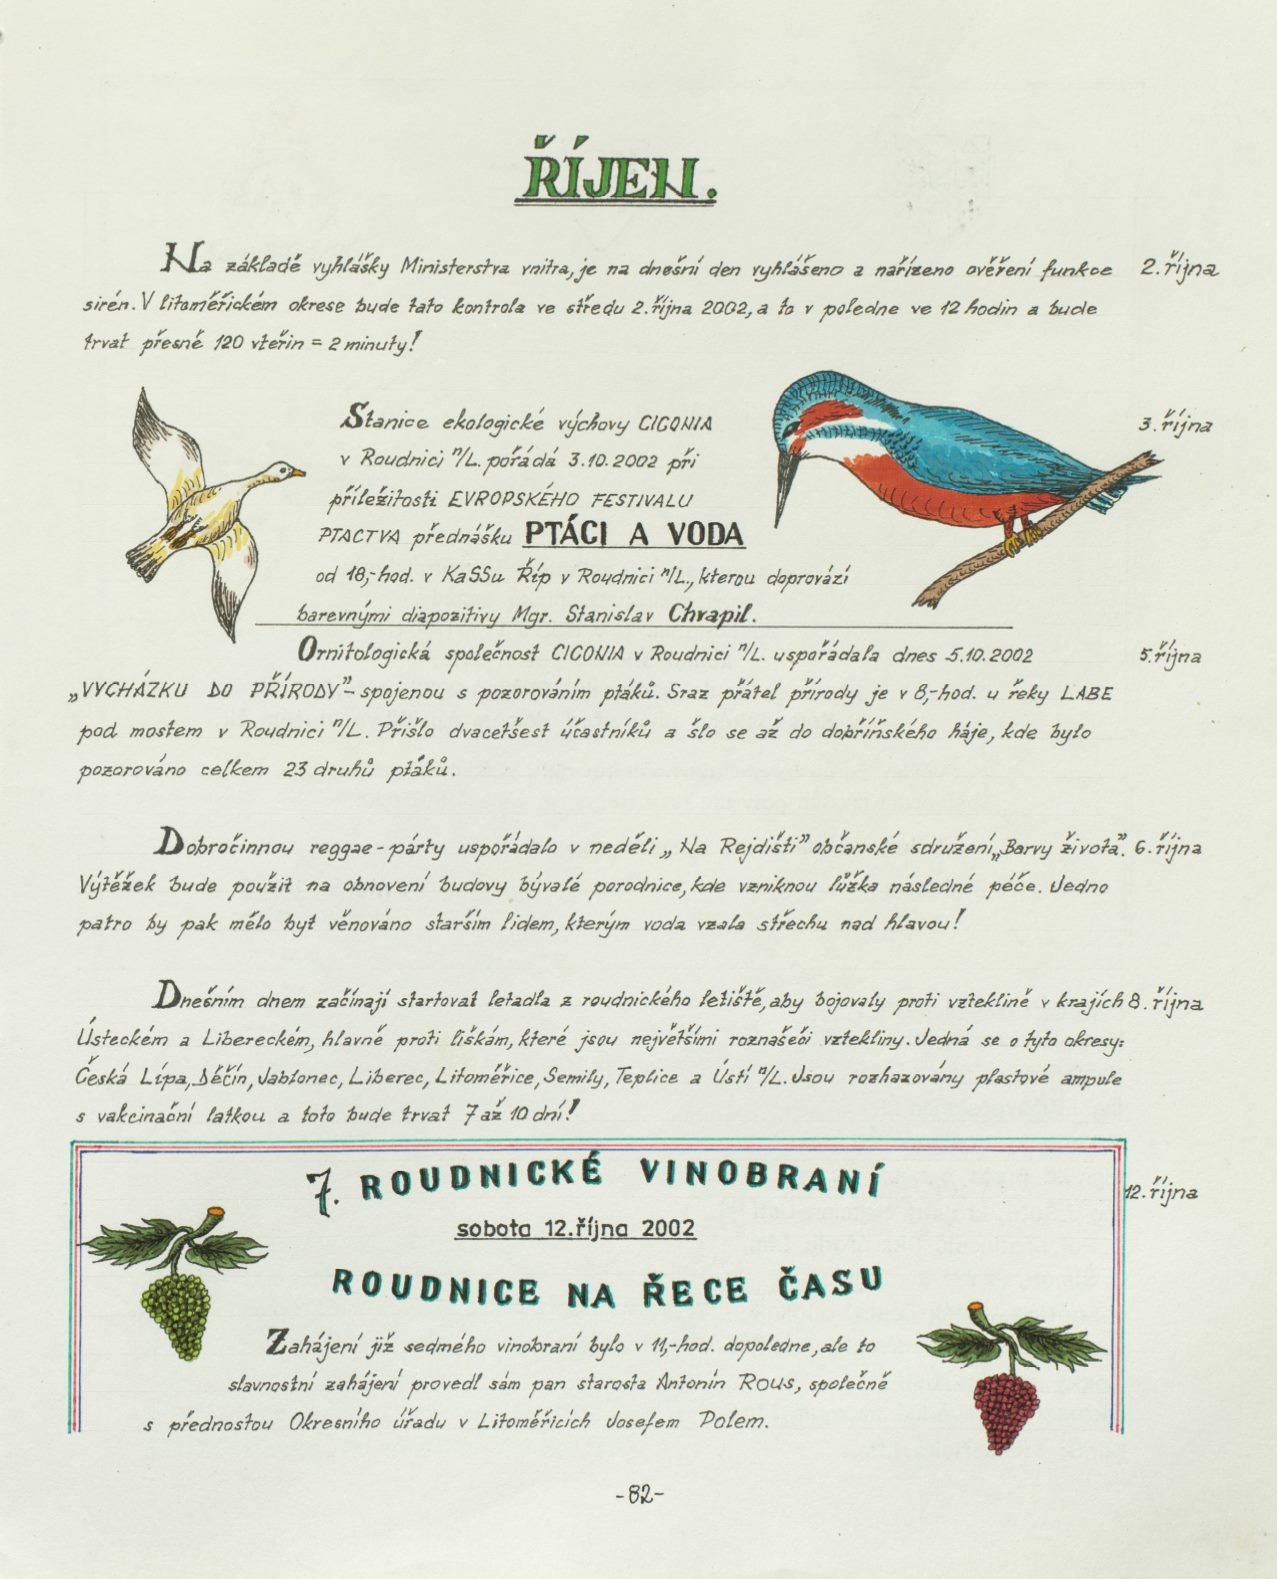 ŘÍJEN.
Na základě vyhlášky Ministerstva vnitra, je na dnešní den vyhlášeno a nařízeno ověření funkce 2. října
sirén. V litoměřickém okrese bude tato kontrola ve středu 2. října 2002, a to v poledne ve 12 hodin a bude
trvat přesně 120 vteřin = 2 minuty!
Stanice ekologické výchovy CICONIA 3. října
v Roudnici n/L. pořádá 3.10.2002 při
příležitosti EVROPSKÉHO FESTIVALU
PTACTVA přednášku PTÁCI A VODA
od 18,-hod. v KaSSu Říp v Roudnici n/L., kterou doprovází
barevnými diapozitivy Mgr. Stanislav Chvapil.
Ornitologická společnost CICONIA v Roudnici n/L. uspořádala dnes 5.10.2002 5. října
„VYCHÁZKU DO PŘÍRODY"- spojenou s pozorováním ptáků. Sraz přátel přírody je v 8,-hod. u řeky LABE
pod mostem v Roudnici n/L. Přišlo dvacetšest účastníků a šlo se až do dobříňského háje, kde bylo
pozorováno celkem 23 druhů ptáků.
Dobročinnou reggae-párty uspořádalo v neděli „Na Rejdišti" občanské sdružení „Barvy života". 6. října
Výtěžek bude použit na obnovení budovy bývalé porodnice, kde vzniknou lůžka následné péče. Jedno
patro by pak mělo být věnováno starším lidem, kterým voda vzala střechu nad hlavou!
Dnešním dnem začínají startovat letadla z roudnického letiště, aby bojovaly proti vzteklině v krajích 8. října
Ústeckém a Libereckém, hlavně proti liškám, které jsou největšími roznašeči vztekliny. Jedná se o tyto okresy:
Česká Lípa, Děčín, Jablonec, Liberec, Litoměřice, Semily, Teplice a Ústí n/L. Jsou rozhazovány plastové ampule
s vakcinační látkou a toto bude trvat 7 až 10 dní!
7. ROUDNICKÉ VINOBRANÍ
12. října
sobota 12. října 2002
ROUDNICE NA ŘECE ČASU
Zahájení již sedmého vinobraní bylo v 11,-hod. dopoledne, ale to
slavnostní zahájení provedl sám pan starosta Antonín Rous, společně
s přednostou Okresního úřadu v Litoměřicích Josefem Polem.
-82-